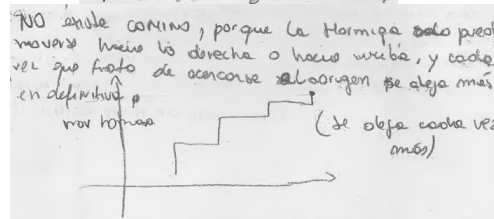 NO existe camino, porque la Hormiga solo pued
moverse hacia la derecha o hacia arriba, y cada
vez que trata de acercarse al origen se aleja más
en definitiva
(se aleja cada vez
más)